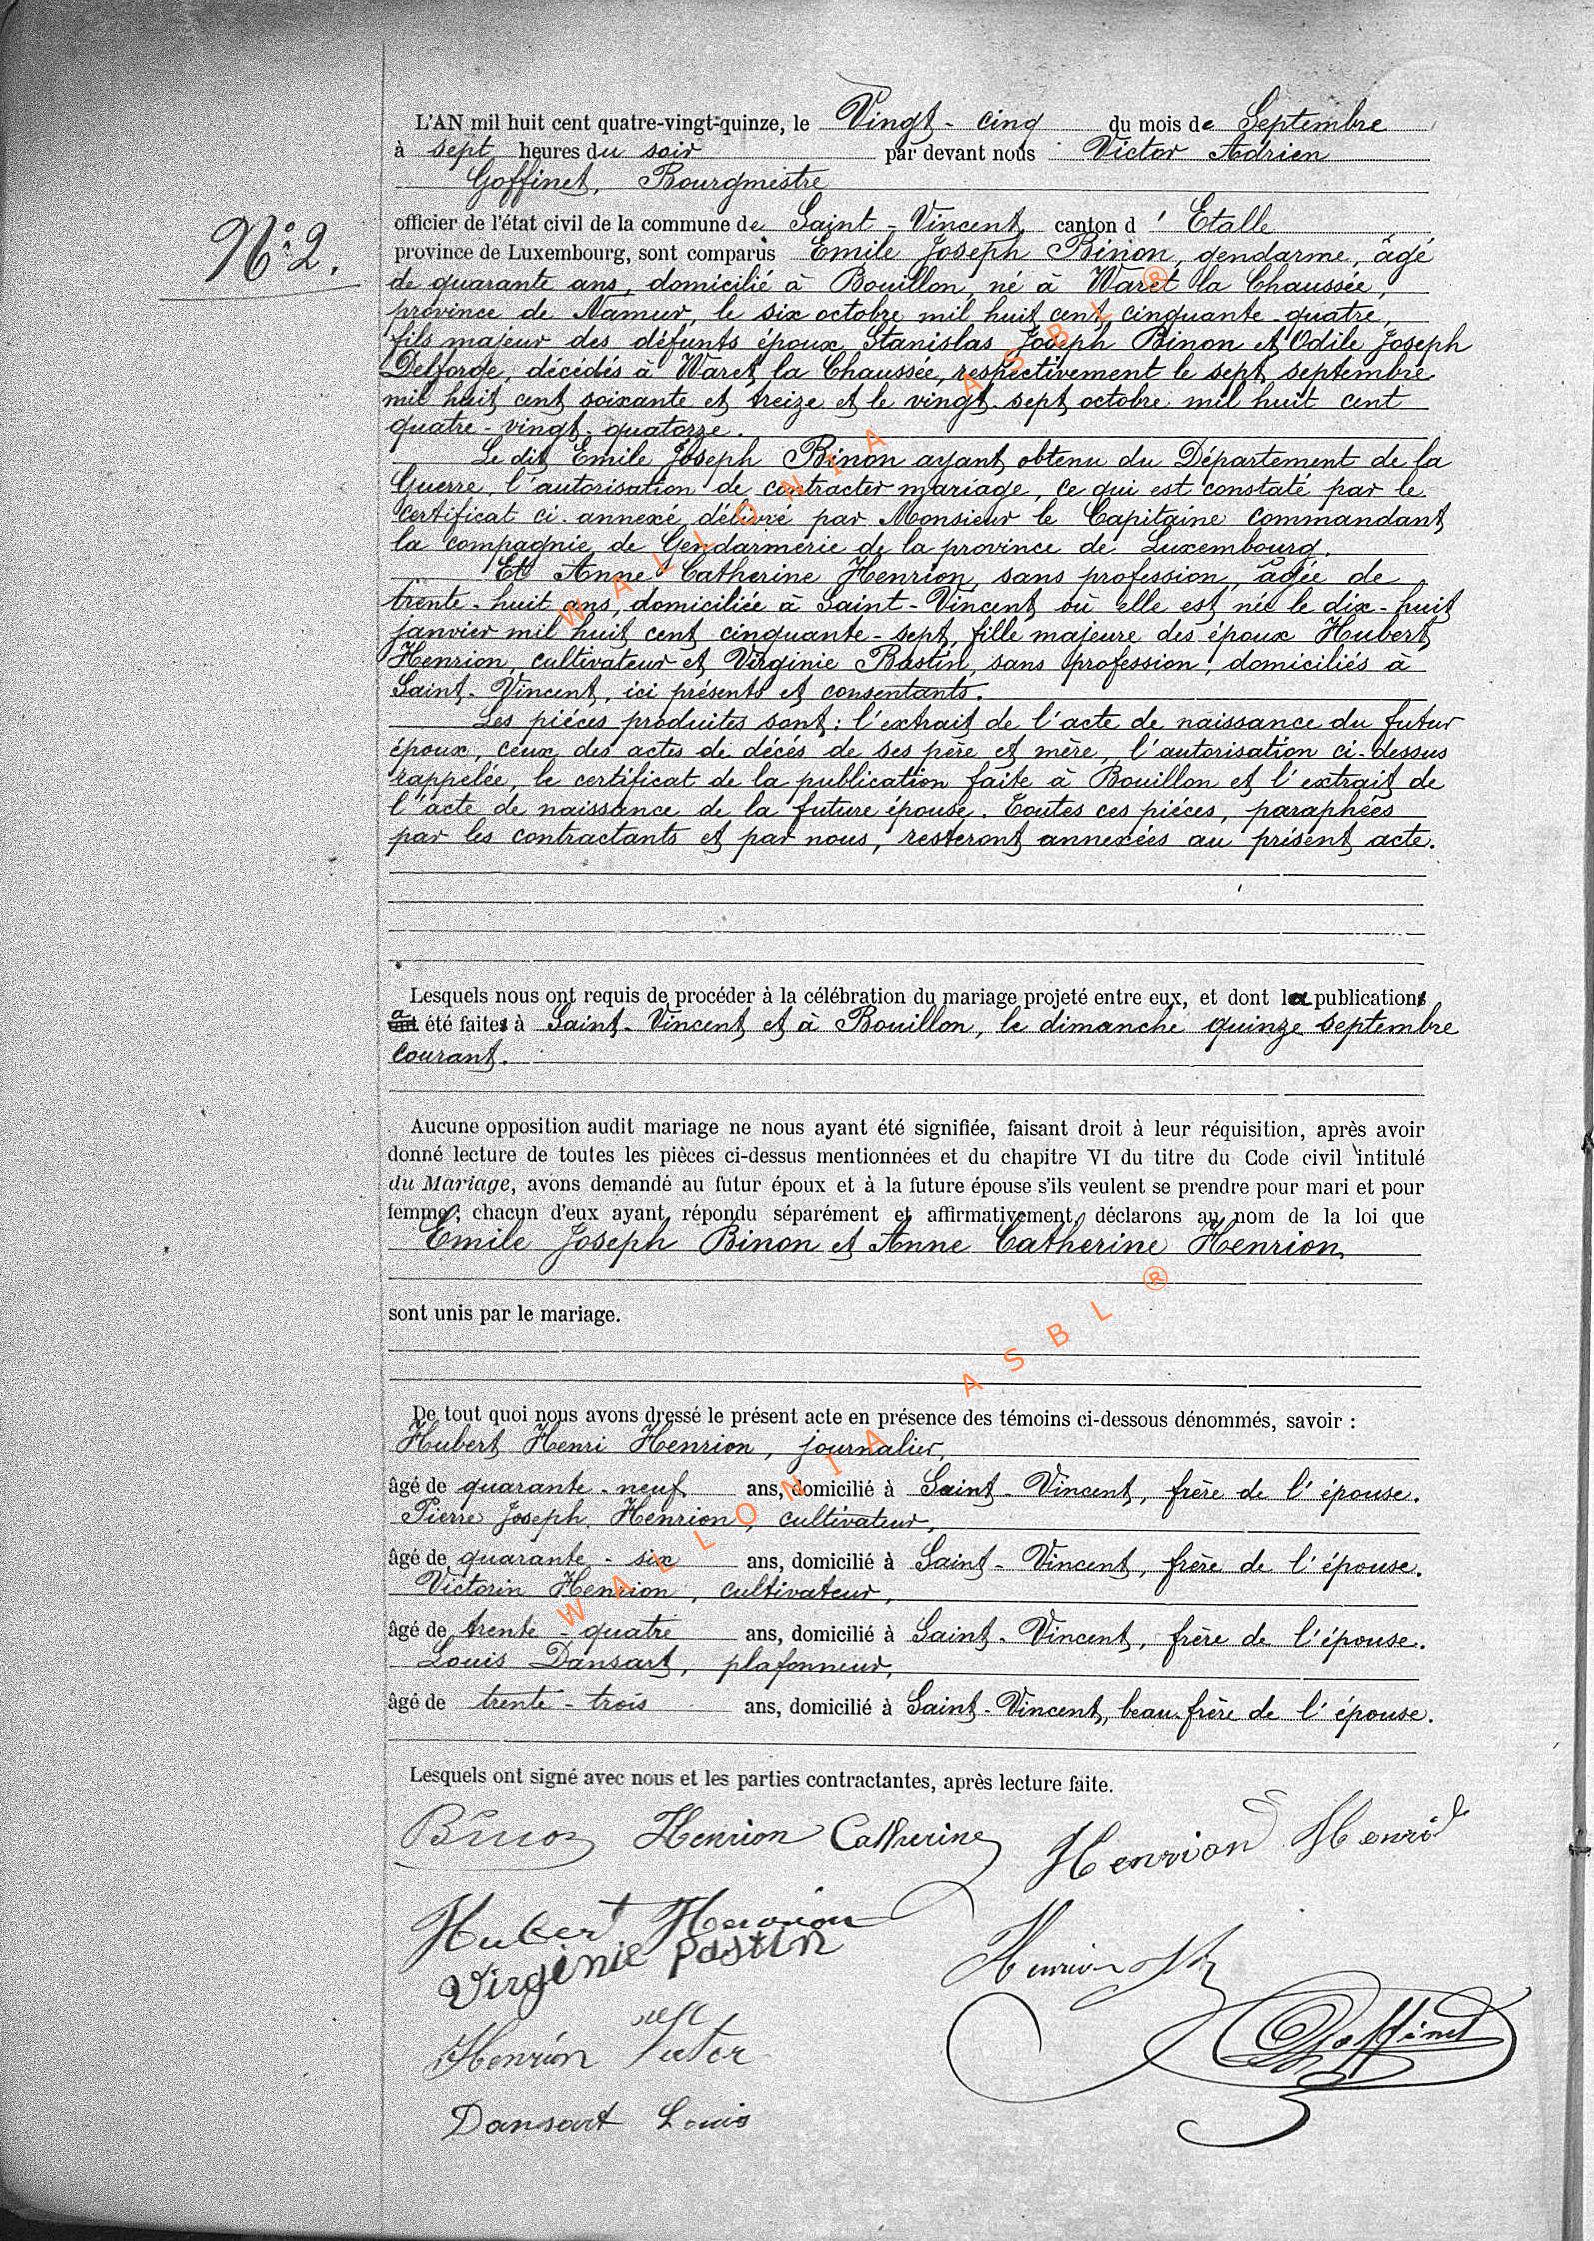 L'AN mil huit cent quatre-vingt-quinze, le Vingt-cinq du mois de Septembre
à sept heures du soir par devant nous Victor Adrien
Goffinet, Bourgmestre
N° 2.
officier de l'état civil de la commune de Saint-Vincent, canton d'Etalle
province de Luxembourg, sont comparus Emile Joseph Binon, gendarme, âgé
de quarante ans, domicilié à Bouillon, né à Waret la Chaussée,
province de Namur, le six octobre mil huit cent cinquante-quatre,
fils majeur des défunts époux Stanislas Joseph Binon et Odile Joseph
Delforge, décédés à Waret la Chaussée, respectivement le sept septembre
mil huit cent soixante et treize et le vingt-sept octobre mil huit cent
quatre-vingt-quatorze.
Le dit Emile Joseph Binon ayant obtenu du Département de la
Guerre, l'autorisation de contracter mariage, ce qui est constaté par le
certificat ci-annexé, délivré par Monsieur le Capitaine commandant
la compagnie de Gendarmerie de la province de Luxembourg.
Et Anne Catherine Henrion, sans profession, âgée de
trente-huit ans, domiciliée à Saint-Vincent où elle est née le dix-huit
janvier mil huit cent cinquante-sept, fille majeure des époux Hubert
Henrion, cultivateur et Virginie Bastin, sans profession, domiciliés à
Saint-Vincent, ici présents et consentants.
Les pièces produites sont: l'extrait de l'acte de naissance du futur
époux, ceux des actes de décès de ses père et mère, l'autorisation ci-dessus
rappelée, le certificat de la publication faite à Bouillon et l'extrait de
l'acte de naissance de la future épouse. Toutes ces pièces, paraphées
par les contractants et par nous, resteront annexées au présent acte.
Lesquels nous ont requis de procéder à la célébration du mariage projeté entre eux, et dont la publication
a été faite à Saint-Vincent et à Bouillon, le dimanche quinze septembre
courant.
Aucune opposition audit mariage ne nous ayant été signifiée, faisant droit à leur réquisition, après avoir
donné lecture de toutes les pièces ci-dessus mentionnées et du chapitre VI du titre du Code civil intitulé
du Mariage, avons demandé au futur époux et à la future épouse s'ils veulent se prendre pour mari et pour
femme; chacun d'eux ayant répondu séparément et affirmativement, déclarons au nom de la loi que
Emile Joseph Binon et Anne Catherine Henrion,
sont unis par le mariage.
De tout quoi nous avons dressé le présent acte en présence des témoins ci-dessous dénommés, savoir :
Hubert Henri Henrion, journalier,
âgé de quarante-neuf ans, domicilié à Saint-Vincent, frère de l'épouse.
Pierre Joseph Henrion, cultivateur,
âgé de quarante-six ans, domicilié à Saint-Vincent, frère de l'épouse.
Victorin Henrion, cultivateur,
âgé de trente-quatre ans, domicilié à Saint-Vincent, frère de l'épouse.
Louis Dansart, plafonneur,
âgé de trente-trois ans, domicilié à Saint-Vincent, beau-frère de l'épouse.
Lesquels ont signé avec nous et les parties contractantes, après lecture faite.
Binon Henrion Catherine Henrion Henri
Hubert Henrion
Virginie Pastin
Henrion
Goffinet
Henrion
Dansart Louis
WALLONIA ASBL ®
WALLONIA ASBL ®